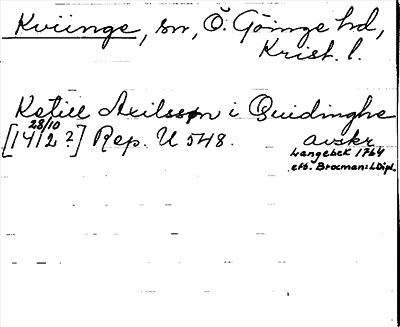 Kviinge, sn, Ö. Göinge hd,
Krist. l.
Ketill Axilsson i Quidinghe
[28/10 1412?] Rep. II 548. avskr
Langebek 1764
eft. Brocman: L Dipl.